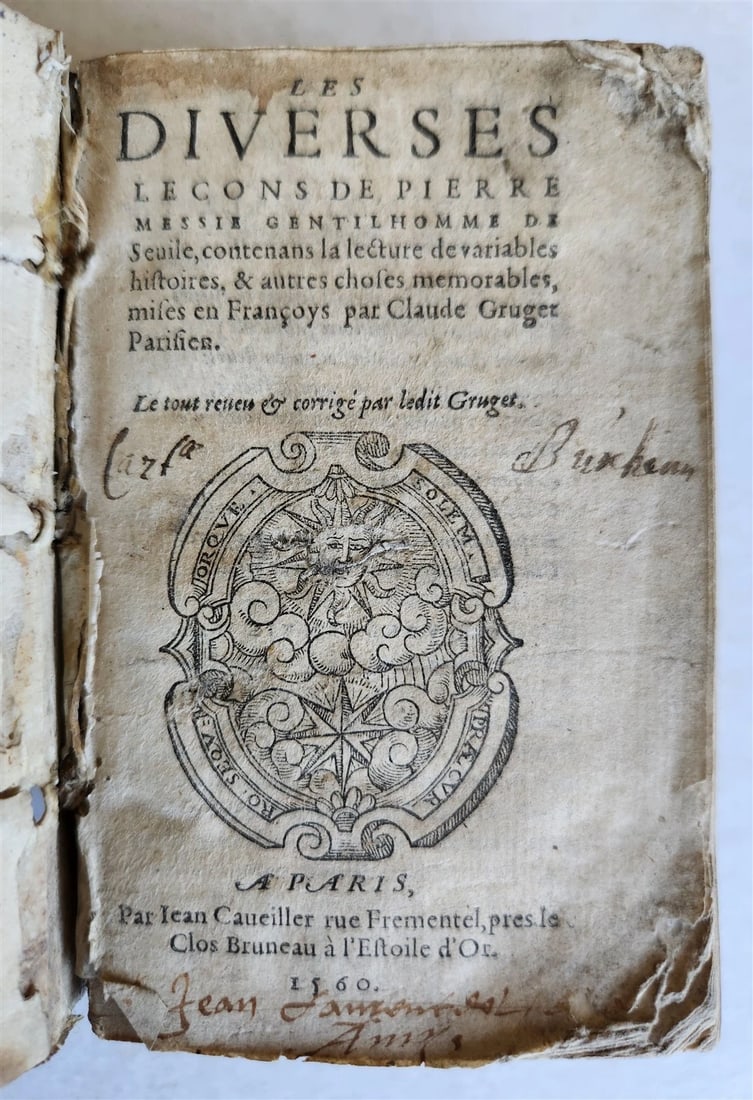 LES
DIVERSES
LECONS DE PIERRE
MESSIE GENTILHOMME DE
Seuile, contenans la lecture de variables
histoires, & autres choses memorables,
mises en Françoys par Claude Gruget
Parisien.
Le tout reueu & corrigé par ledit Gruget.
Cartª
Buxheim
ORQVE
SOLEM
RO. SEQVE
TRÆ CVR
A PARIS,
Par Iean Caueiller rue Frementel, pres le
Clos Bruneau à l'Estoile d'Or.
1560.
Jean